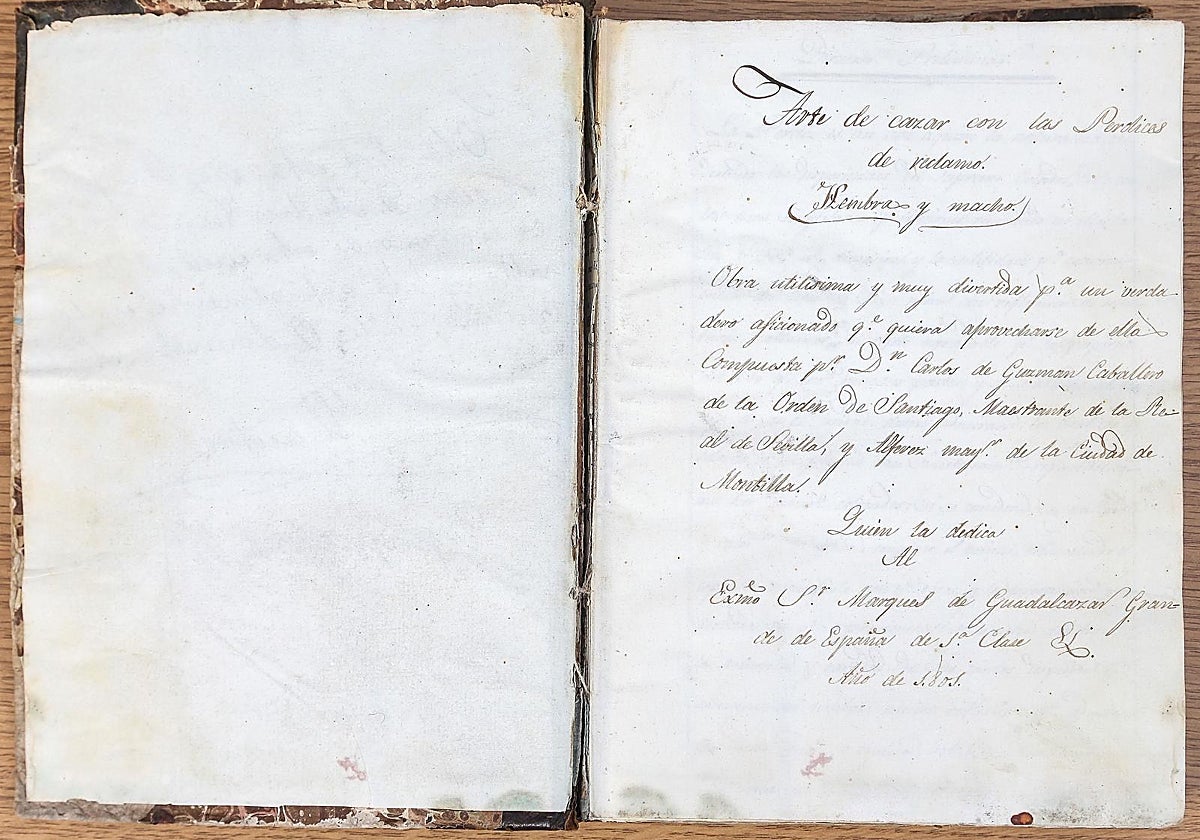 Arte de cazar con las Perdices
de reclamo.
Hembra y macho.
Obra utilisima y muy divertida p.ª un verda
dero aficionado q.ᵉ quiera aprovecharse de ella
Compuesta p.ʳ D.ⁿ Carlos de Guzman Caballero
de la Orden de Santiago, Maestrante de la Re-
al de Sevilla, y Alferez may.ʳ de la Ciudad de
Montilla.
Quien la dedica
Al
Exmõ S.ʳ Marques de Guadalcazar Gran-
de de España de 1.ª Clase &.
Año de 1801.